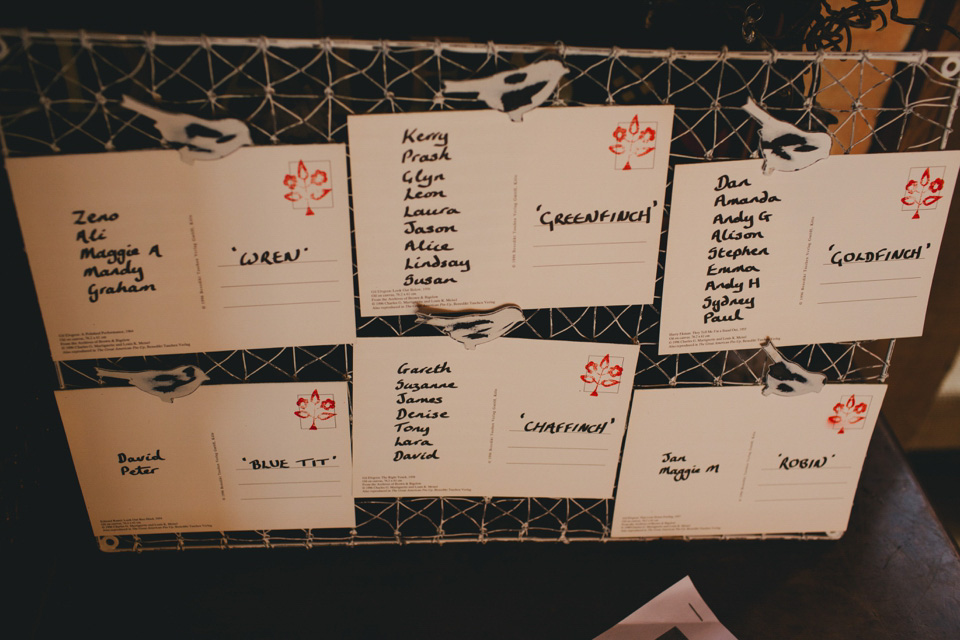 Zeno
Ali
Maggie A
Mandy
Graham
'WREN'
Kerry
Prash
Glyn
Leon
Laura
Jason
Alice
Lindsay
Susan
'GREENFINCH'
Dan
Amanda
Andy G
Alison
Stephen
Emma
Andy H
Sydney
Paul
'GOLDFINCH'
David
Peter
'BLUE TIT'
Gareth
Suzanne
James
Denise
Tony
Lara
David
'CHAFFINCH'
Jan
Maggie M
'ROBIN'